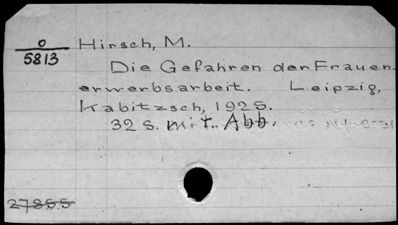 O
5813
Hirsch, M.
Die Gefahren der Frauen-
erwerbsarbeit. Leipzig,
Kabitzsch, 1925.
32 S. mit Abb.
27855